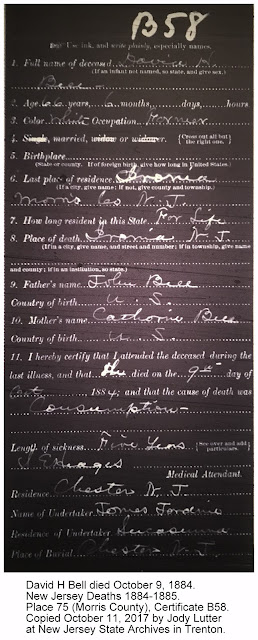 B58
Use ink, and write plainly, especially names.
1. Full name of deceased David H.
(If an infant not named, so state, and give sex.)
Bell
2. Age 66 years, 6 months, days, hours
3. Color White Occupation Farmer
4. Single, married, widow or widower. {Cross out all but the right one.}
5. Birthplace
(State or county. If of foreign birth, give how long in United States.)
6. Last place of residence
(If a city, give name; If not, give county and township.)
Morris Co N. J.
7. How long resident in this State. For Life
8. Place of death, N. J.
(If in city, give name, and street and number; if in township, give name
and county; if in an institution, so state.)
9. Father's name John Bell
Country of birth U. S.
10. Mother's name Catharine Bell
Country of birth U. S.
11. I hereby certify that I attended the deceased during the
last illness, and that he died on the 9th day of
Oct, 1884, and that the cause of death was
Consumption—
Length of sickness Five Years {See over and add particulars.
Medical Attendant.
Residence Chester N. J.
Name of Undertaker James Jardine
Residence of Undertaker Succasunna
Place of Burial Chester N. J.
David H Bell died October 9, 1884.
New Jersey Deaths 1884-1885.
Place 75 (Morris County), Certificate B58.
Copied October 11, 2017 by Jody Lutter
at New Jersey State Archives in Trenton.